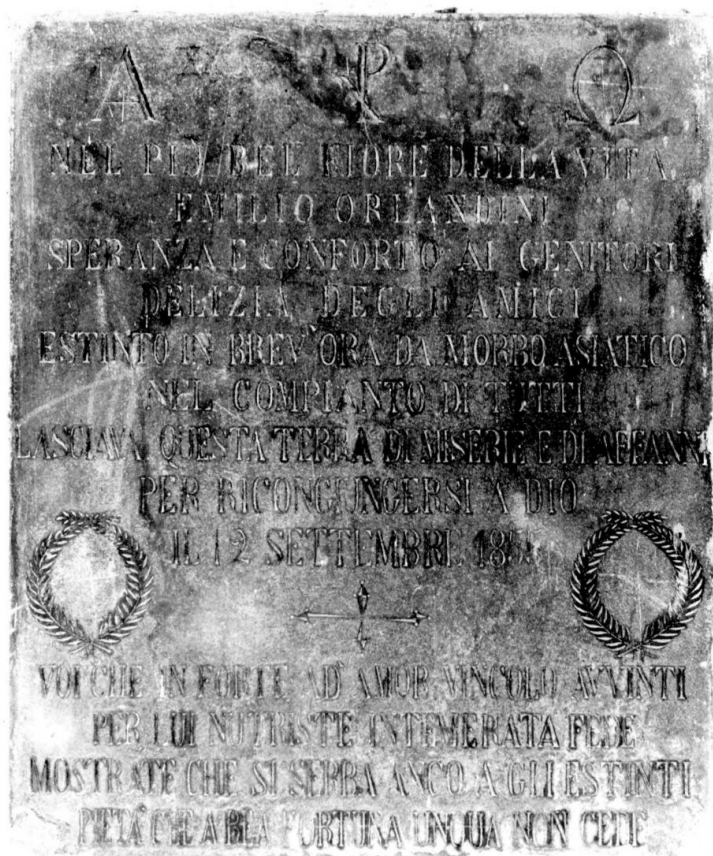 Α ☧ Ω
NEL PIÙ BEL FIORE DELLA VITA
EMILIO ORLANDINI
SPERANZA E CONFORTO AI GENITORI
DELIZIA DEGLI AMICI
ESTINTO IN BREV'ORA DA MORBO ASIATICO
NEL COMPIANTO DI TUTTI
LASCIAVA QUESTA TERRA DI MISERIE E DI AFFANNI
PER RICONGIUNGERSI A DIO
IL 12 SETTEMBRE
VOI CHE IN FORTE AD AMOR VINCOLO AVVINTI
PER LUI NUTRISTE INTEMERATA FEDE
MOSTRATE CHE SI SERBA ANCO AGLI ESTINTI
PIETÀ CHE A FORTUNA UNQUA NON CEDE